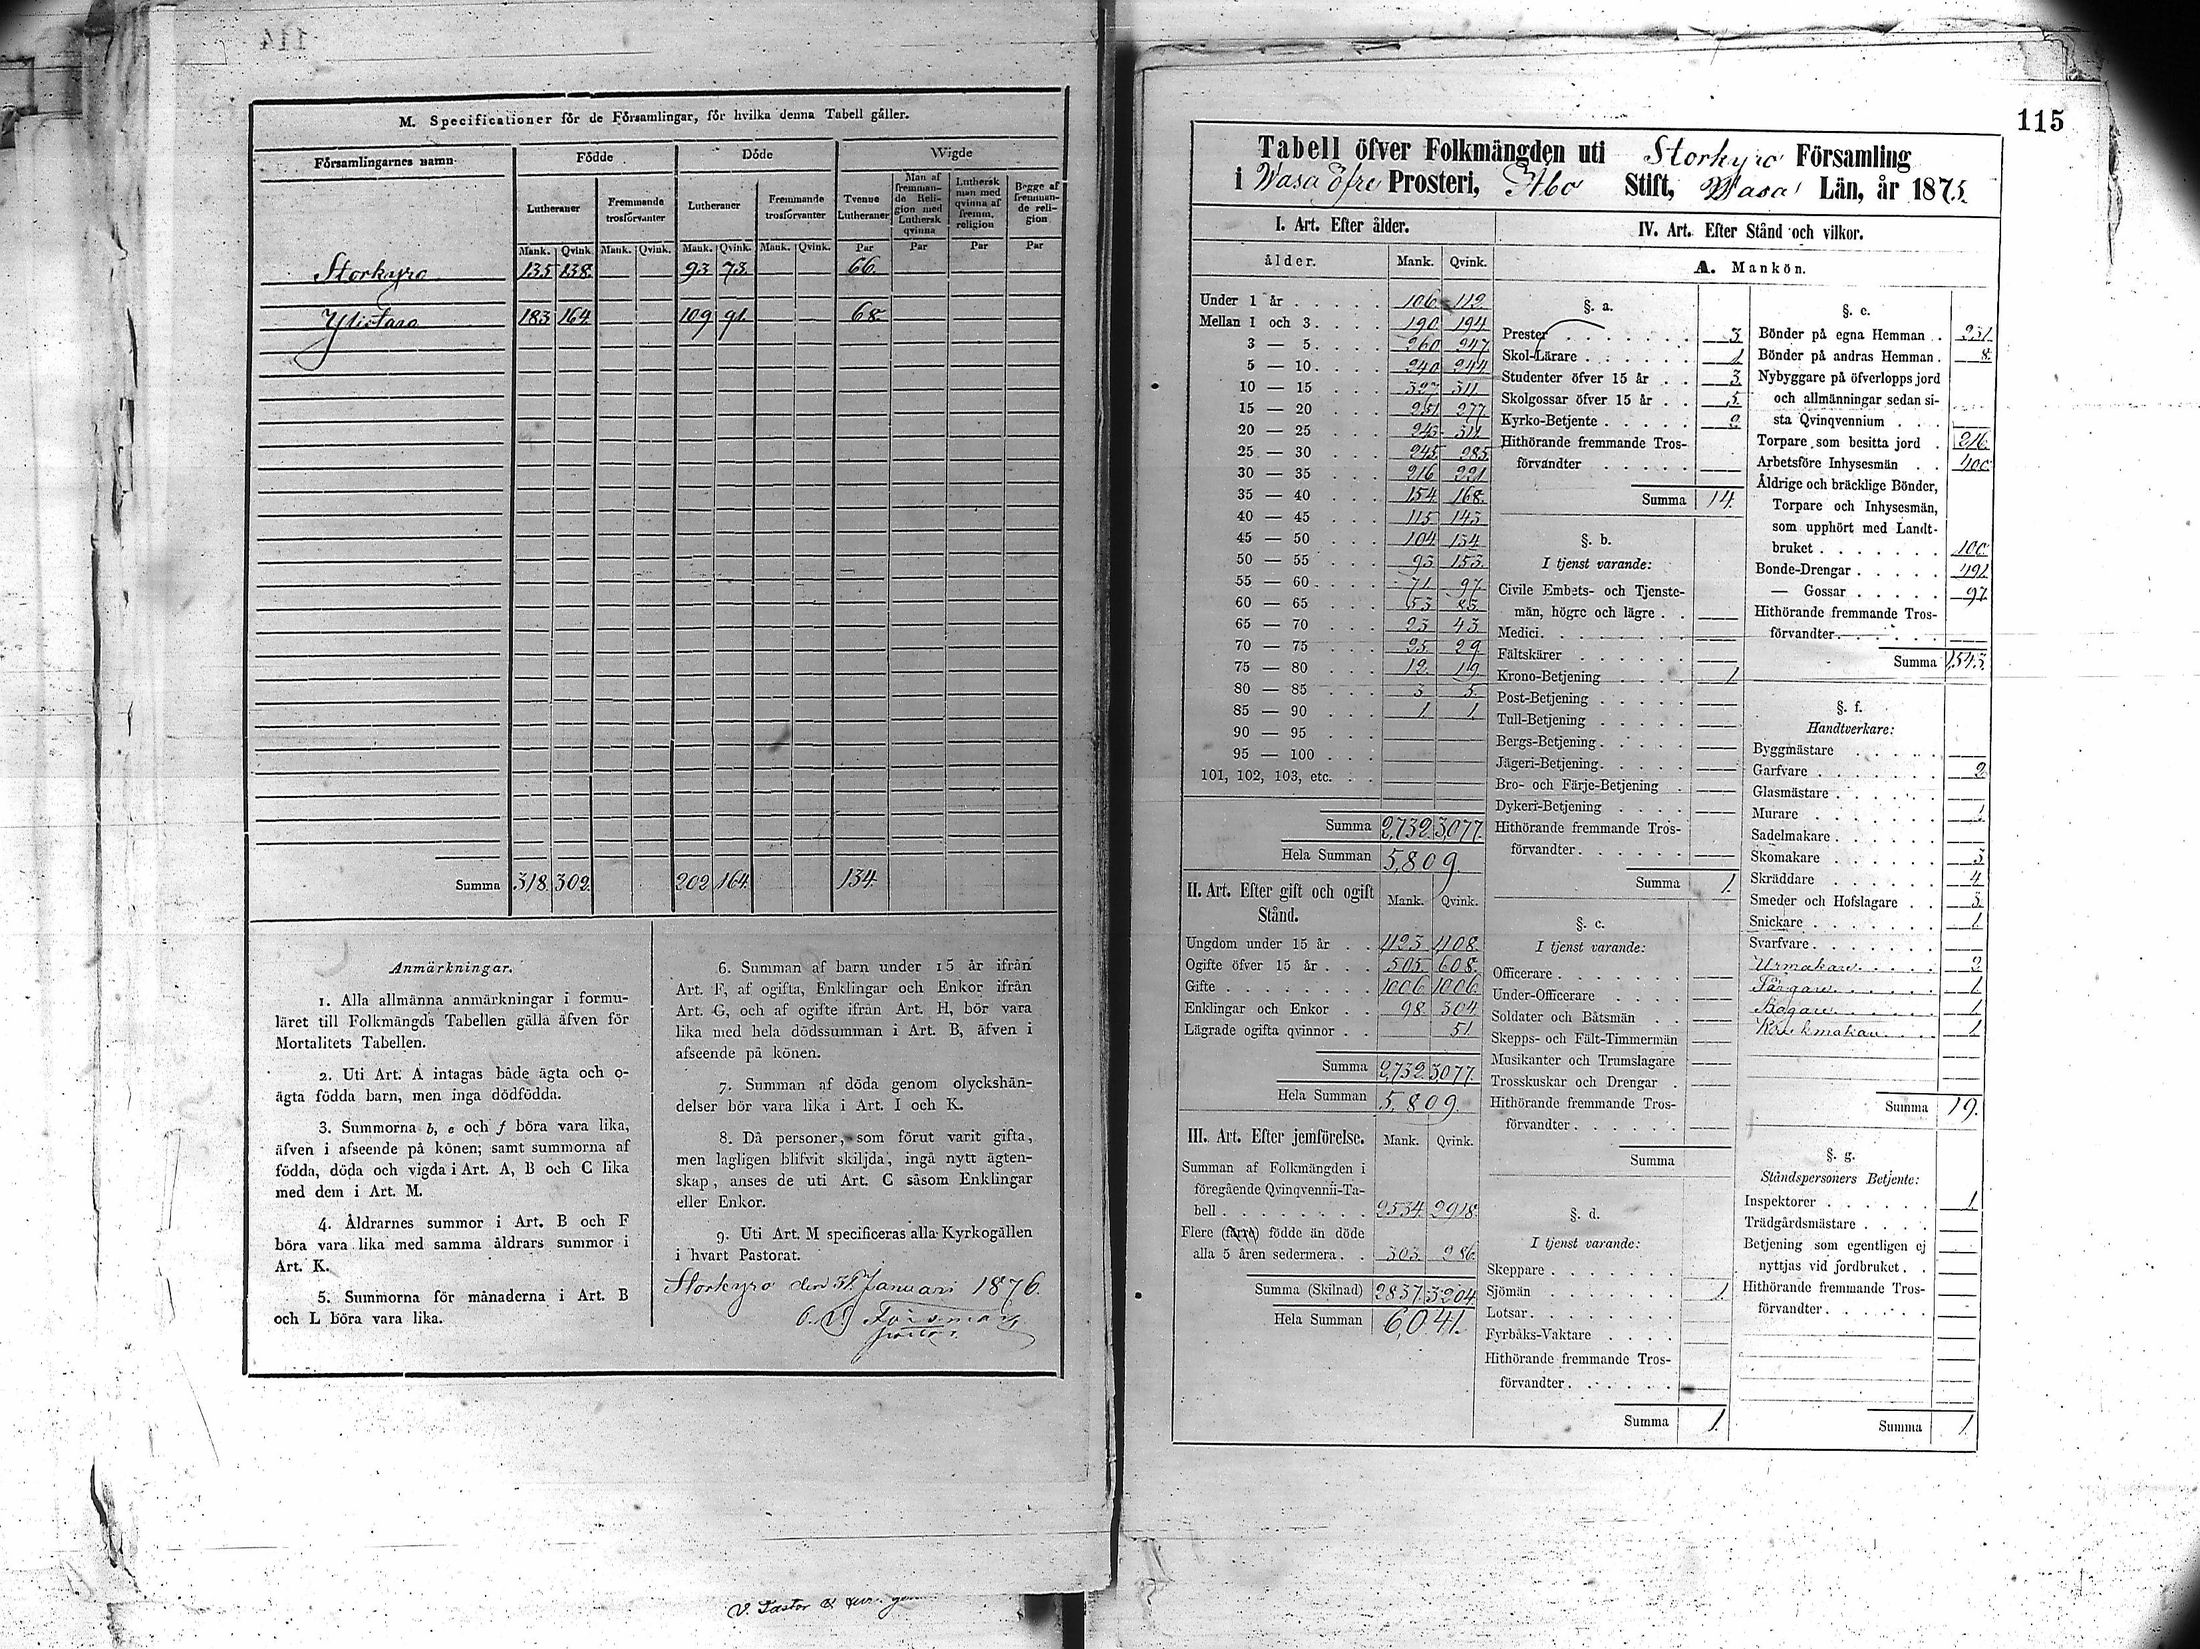 114
M. Specificationer för de Församlingar, för hvilka denna Tabell gäller.
Församlingarnes namn
Födde
Döde
Wigde
Lutheraner
Fremmande trosförvanter
Lutheraner
Fremmande trosförvanter
Tvenne Lutheraner
Man af fremmande Religion med Luthersk qvinna
Luthersk man med qvinna af fremm. religion
Begge af fremmande religion
Mank. Qvink. Mank. Qvink. Mank. Qvink. Mank. Qvink. Par Par Par Par
Storkyro 135 138 93 73 66
Ylistaro 183 164 109 91 68
Summa 318 302 202 164 134
Anmärkningar.
1. Alla allmänna anmärkningar i formu-
läret till Folkmängds Tabellen gälla äfven för
Mortalitets Tabellen.
2. Uti Art. A intagas både ägta och o-
ägta födda barn, men inga dödfödda.
3. Summorna b, e och f böra vara lika,
äfven i afseende på könen; samt summorna af
födda, döda och vigda i Art. A, B och C lika
med dem i Art. M.
4. Åldrarnes summor i Art. B och F
böra vara lika med samma åldrars summor i
Art. K.
5. Summorna för månaderna i Art. B
och L böra vara lika.
6. Summan af barn under 15 år ifrån
Art. F, af ogifta, Enklingar och Enkor ifrån
Art. G, och af ogifte ifrån Art. H, bör vara
lika med hela dödssumman i Art. B, äfven i
afseende på könen.
7. Summan af döda genom olyckshän-
delser bör vara lika i Art. I och K.
8. Då personer, som förut varit gifta,
men lagligen blifvit skiljda, ingå nytt ägten-
skap, anses de uti Art. C såsom Enklingar
eller Enkor.
9. Uti Art. M specificeras alla Kyrkogällen
i hvart Pastorat.
Storkyro den 31 Januari 1876.
Forsman
115
Tabell öfver Folkmängden uti Storkyro Församling
i Wasa öfre Prosteri, Åbo Stift, Wasa Län, år 1875.
I. Art. Efter ålder.
ålder. Mank. Qvink.
Under 1 år 106 112
Mellan 1 och 3 190 194
3 — 5 260 247
5 — 10 240 244
10 — 15 327 311
15 — 20 251 277
20 — 25 243 311
25 — 30 245 285
30 — 35 216 221
35 — 40 154 168
40 — 45 115 143
45 — 50 104 134
50 — 55 93 153
55 — 60 71 97
60 — 65 53 83
65 — 70 23 43
70 — 75 25 29
75 — 80 12 19
80 — 85 3 5
85 — 90 1 1
90 — 95
95 — 100
101, 102, 103, etc.
Summa 2,732 3,077
Hela Summan 5,809.
II. Art. Efter gift och ogift Stånd. Mank. Qvink.
Ungdom under 15 år 1123 1108
Ogifte öfver 15 år 505 608
Gifte 1006 1006
Enklingar och Enkor 98 304
Lägrade ogifta qvinnor 51
Summa 2,732 3,077
Hela Summan 5,809.
III. Art. Efter jemförelse. Mank. Qvink.
Summan af Folkmängden i
föregående Qvinqvennii-Ta-
bell 2534 2918
Flere (färre) födde än döde
alla 5 åren sedermera 303 286
Summa (Skilnad) 2837 3204
Hela Summan 6,041.
IV. Art. Efter Stånd och vilkor.
A. Mankön.
§. a.
Prester 3
Skol-Lärare 1
Studenter öfver 15 år 3
Skolgossar öfver 15 år 5
Kyrko-Betjente 2
Hithörande fremmande Tros-
förvandter
Summa 14
§. b.
I tjenst varande:
Civile Embets- och Tjenste-
män, högre och lägre
Medici
Fältskärer
Krono-Betjening 1
Post-Betjening
Tull-Betjening
Bergs-Betjening
Jägeri-Betjening
Bro- och Färje-Betjening
Dykeri-Betjening
Hithörande fremmande Tros-
förvandter
Summa 1.
§. c.
I tjenst varande:
Officerare
Under-Officerare
Soldater och Båtsmän
Skepps- och Fält-Timmermän
Musikanter och Trumslagare
Trosskuskar och Drengar
Hithörande fremmande Tros-
förvandter
Summa
§. d.
I tjenst varande:
Skeppare
Sjömän 1
Lotsar
Fyrbåks-Vaktare
Hithörande fremmande Tros-
förvandter
Summa 1.
§. e.
Bönder på egna Hemman 231
Bönder på andras Hemman 8
Nybyggare på öfverlopps jord
och allmänningar sedan si-
sta Qvinqvennium
Torpare som besitta jord 216
Arbetsföre Inhysesmän 400
Åldrige och bräcklige Bönder,
Torpare och Inhysesmän,
som upphört med Landt-
bruket 100
Bonde-Drengar 491
— Gossar 97
Hithörande fremmande Tros-
förvandter
Summa 1,543
§. f.
Handtverkare:
Byggmästare
Garfvare 2
Glasmästare
Murare 1
Sadelmakare
Skomakare 3
Skräddare 4
Smeder och Hofslagare 3
Snickare 1
Svarfvare
Urmakare 2
Färgare 1
Bagare 1
Krukmakare 1
Summa 19.
§. g.
Ståndspersoners Betjente:
Inspektorer 1
Trädgårdsmästare
Betjening som egentligen ej
nyttjas vid jordbruket
Hithörande fremmande Tros-
förvandter
Summa 1